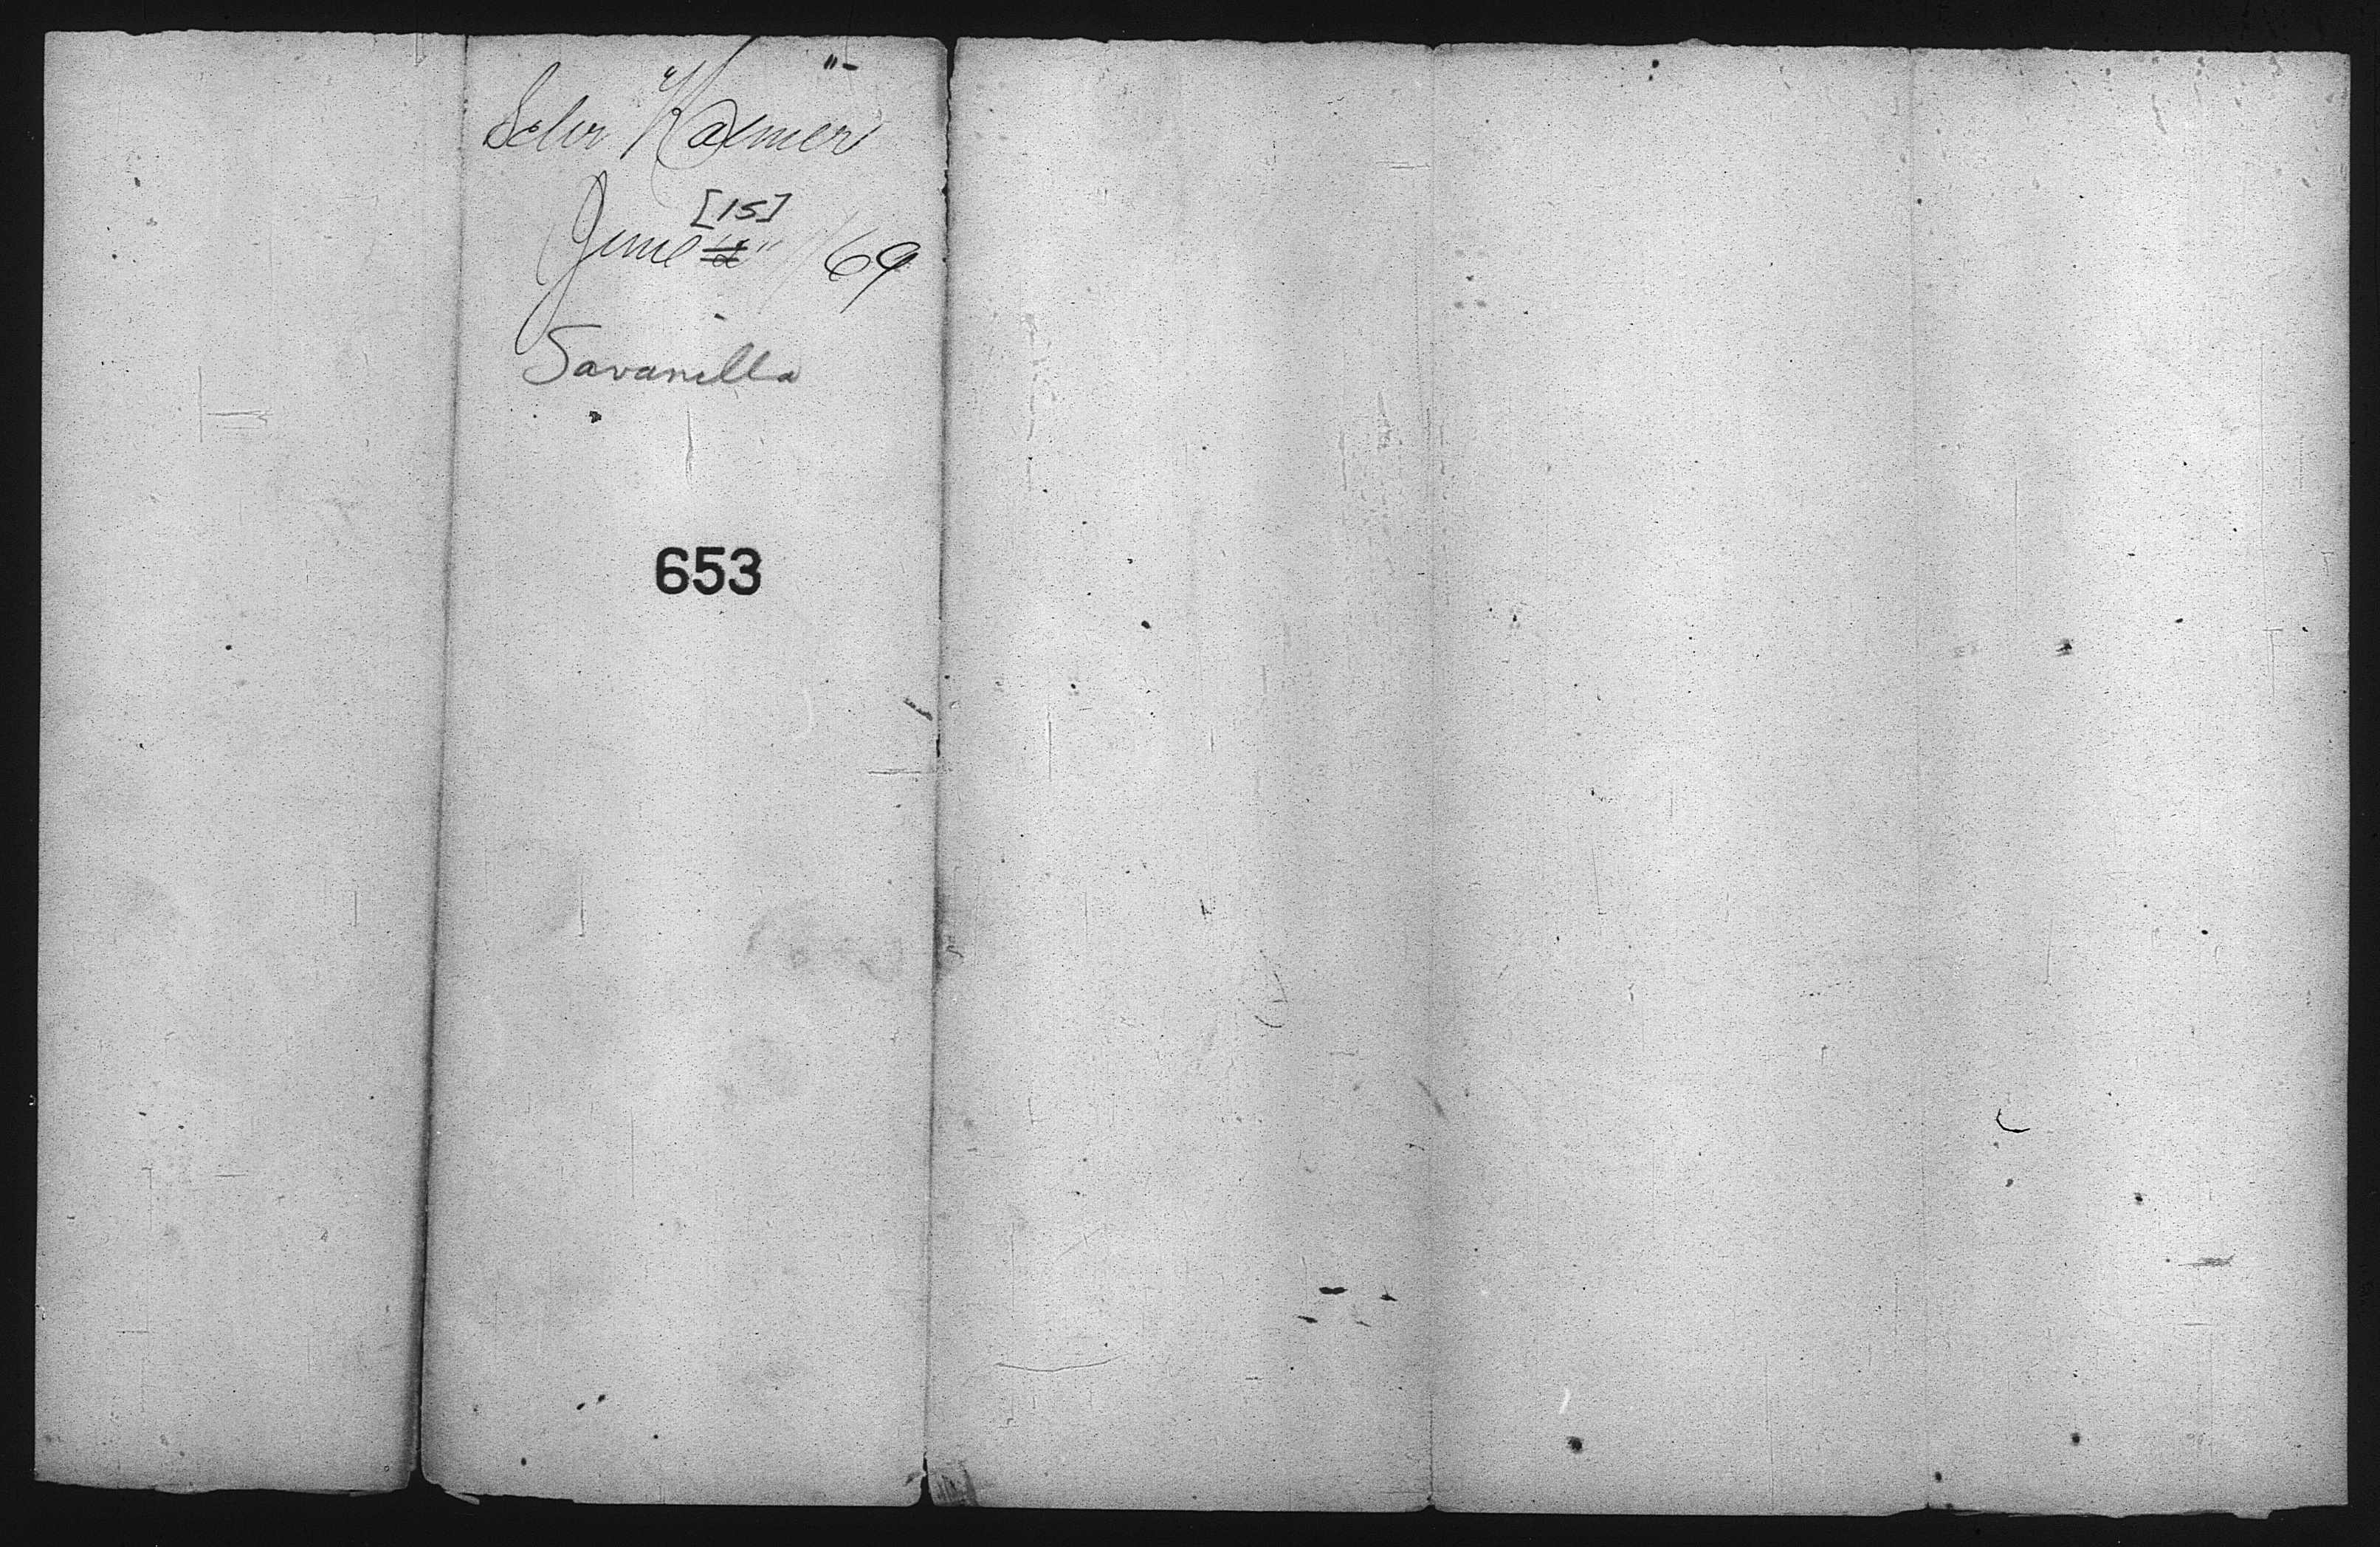 Schr "Kasmer"
[15]
June "" /69
Savanilla
653